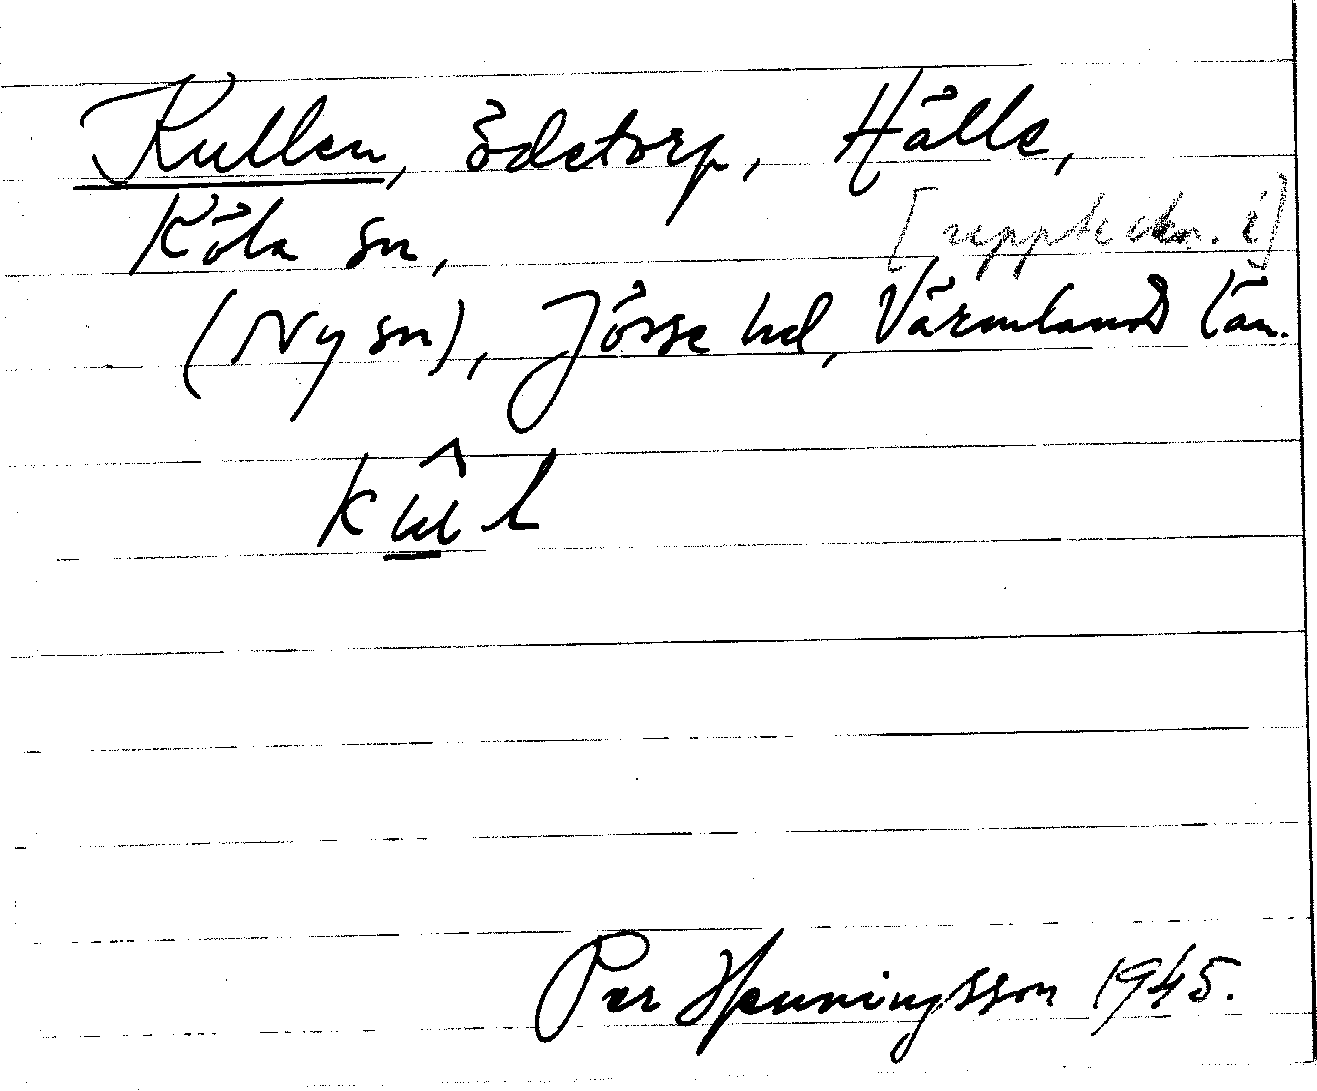 Kullen, ödetorp, Hälle,
Köla sn, [uppteckn. i]
(Ny sn), Jösse hd, Värmlands län.
kul
Per Henningsson 1945.